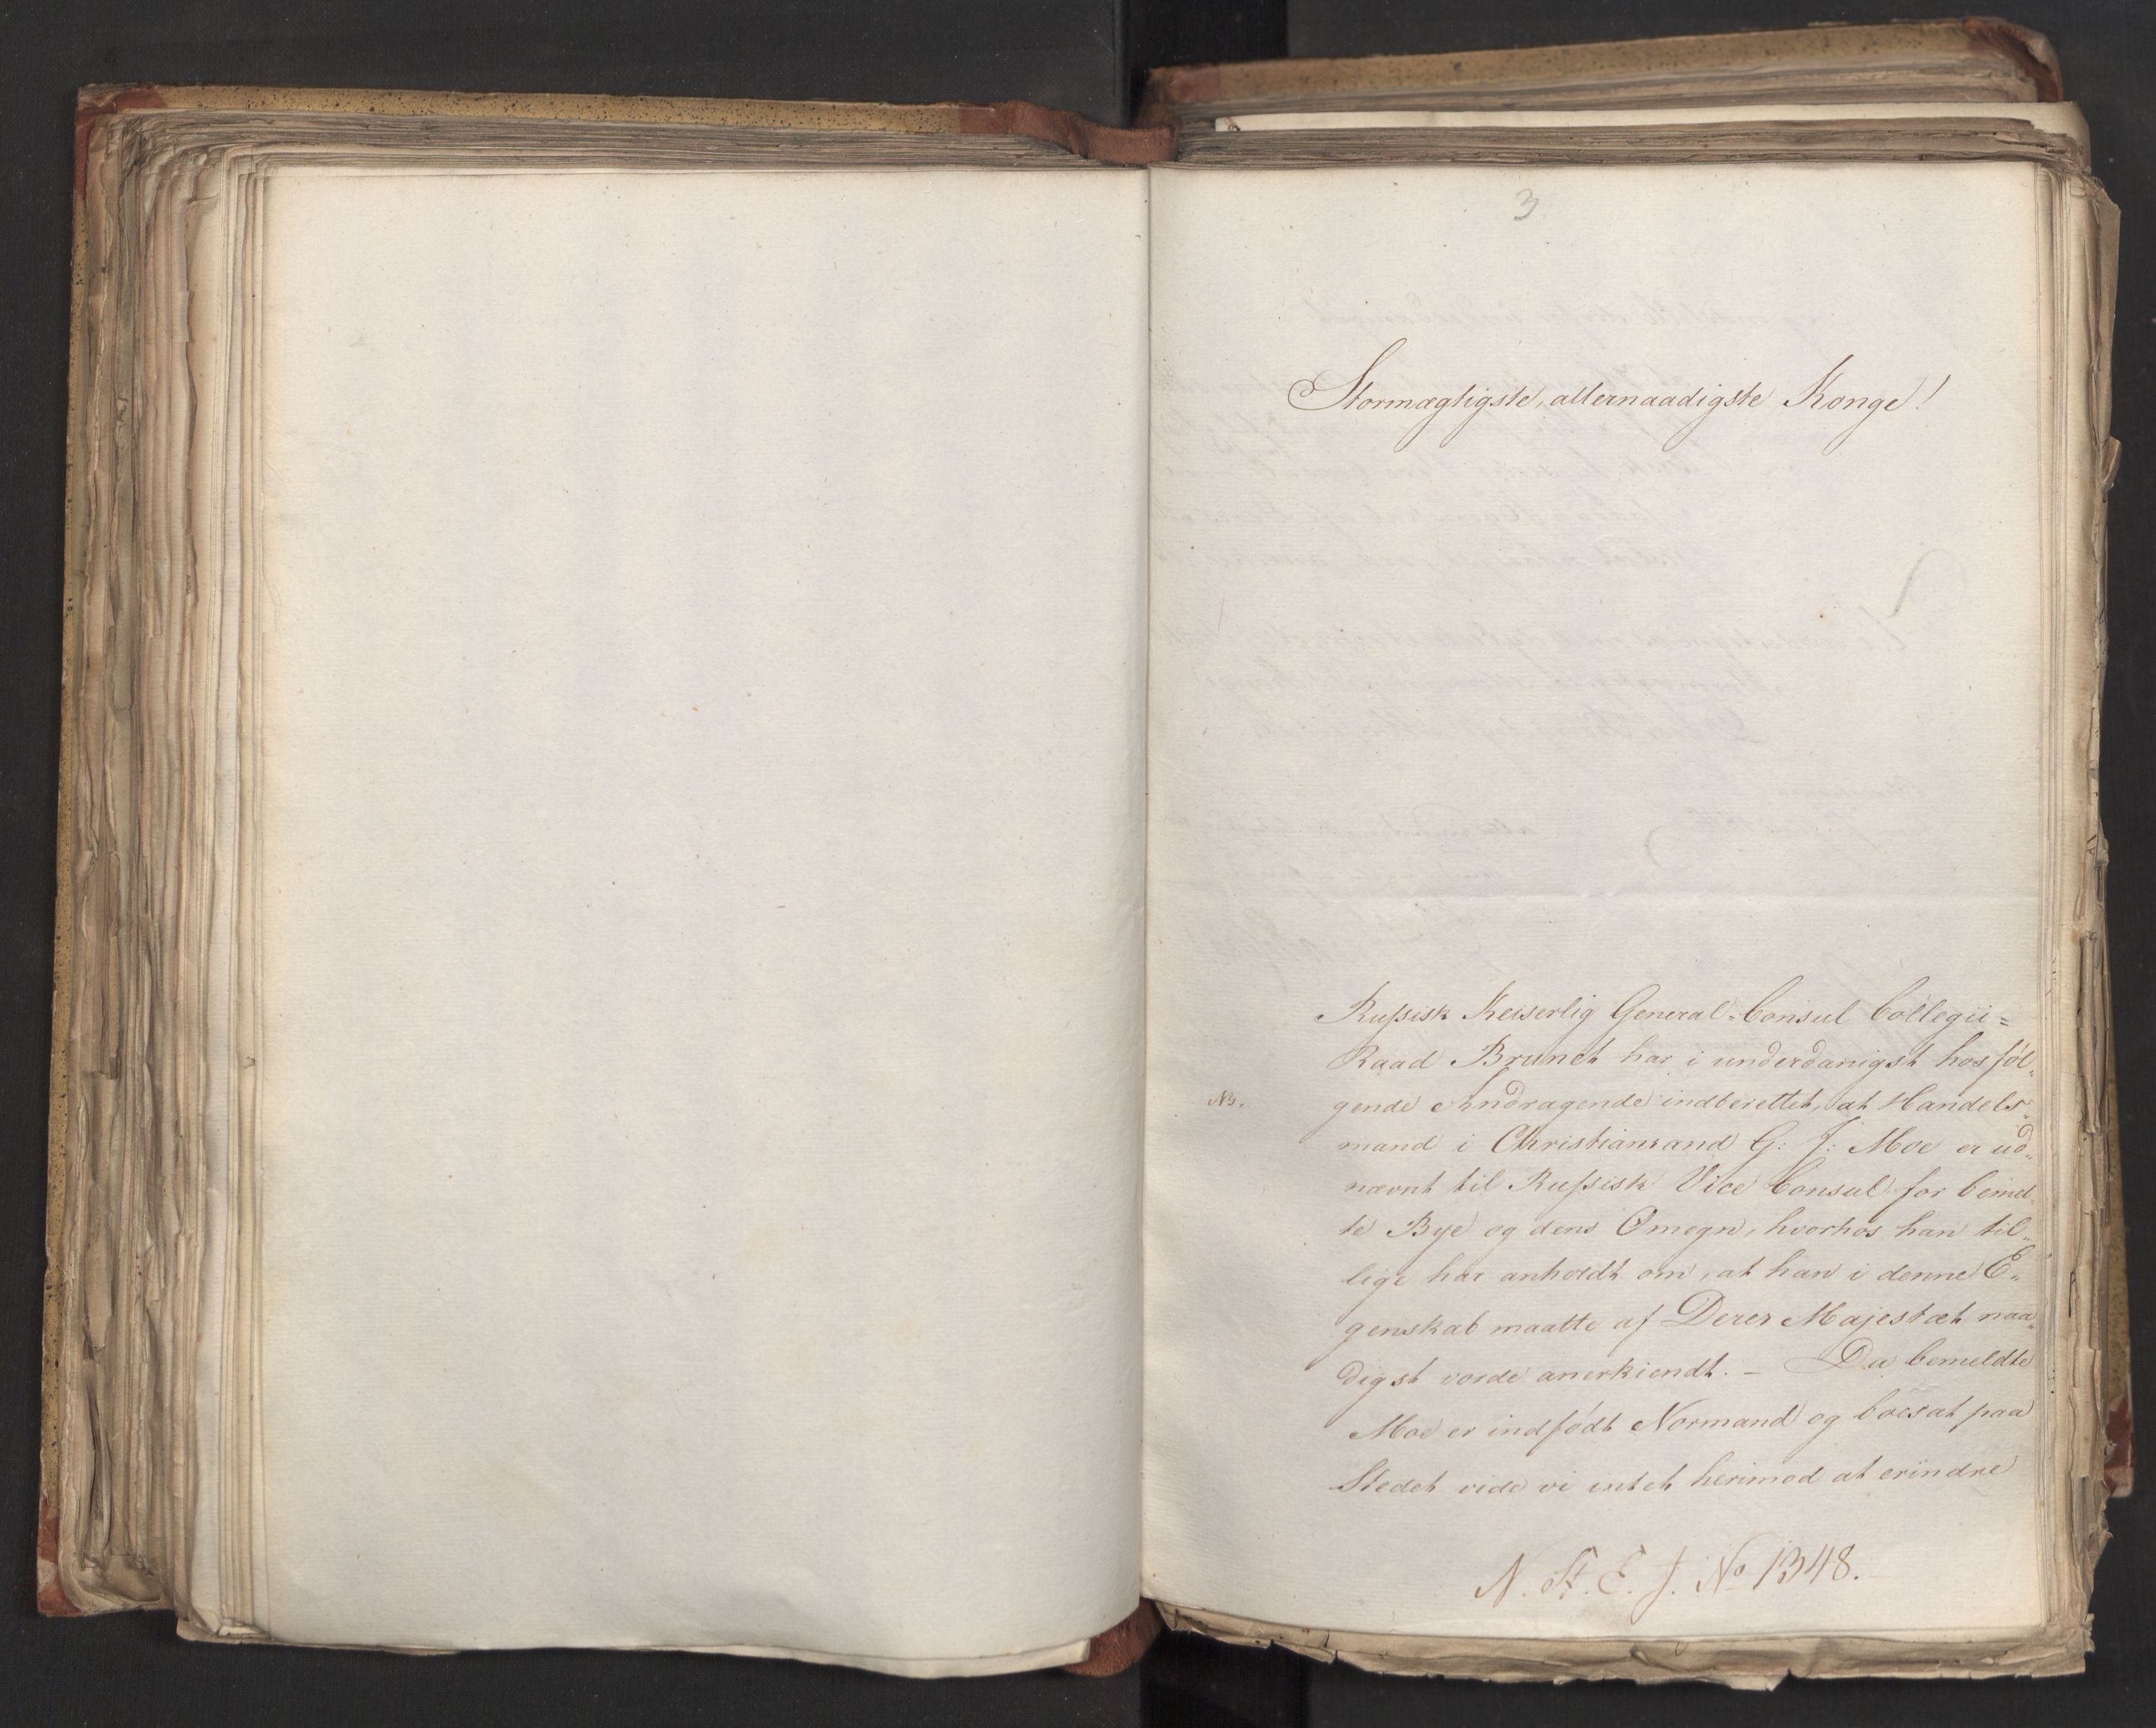 3
Stormægtigste, allernaadigste Konge!
Russisk Keiserlig General-Consul Collegii=
Raad Brunet har i underdanigst hosføl„
gende Andragende indberettet, at Handels„
mand i Christiansand G: J: Moe er ud„
nævnt til Russisk Vice Consul for bemel„
te Bye og dens Omegn, hvorhos han til„
lige har anholdt om, at han i denne E„
genskab maatte af Deres Majestæt naa„
digst vorde anerkiendt. – Da bemeldte
Moe er indfødt Normand og boesat paa
Stedet vide vi intet herimod at erindre
N. St. E. J. No 1348.